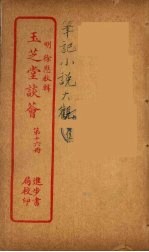 筆記小說大觀
明 徐應秋輯
玉芝堂談薈
第十六冊
進步書
局校印